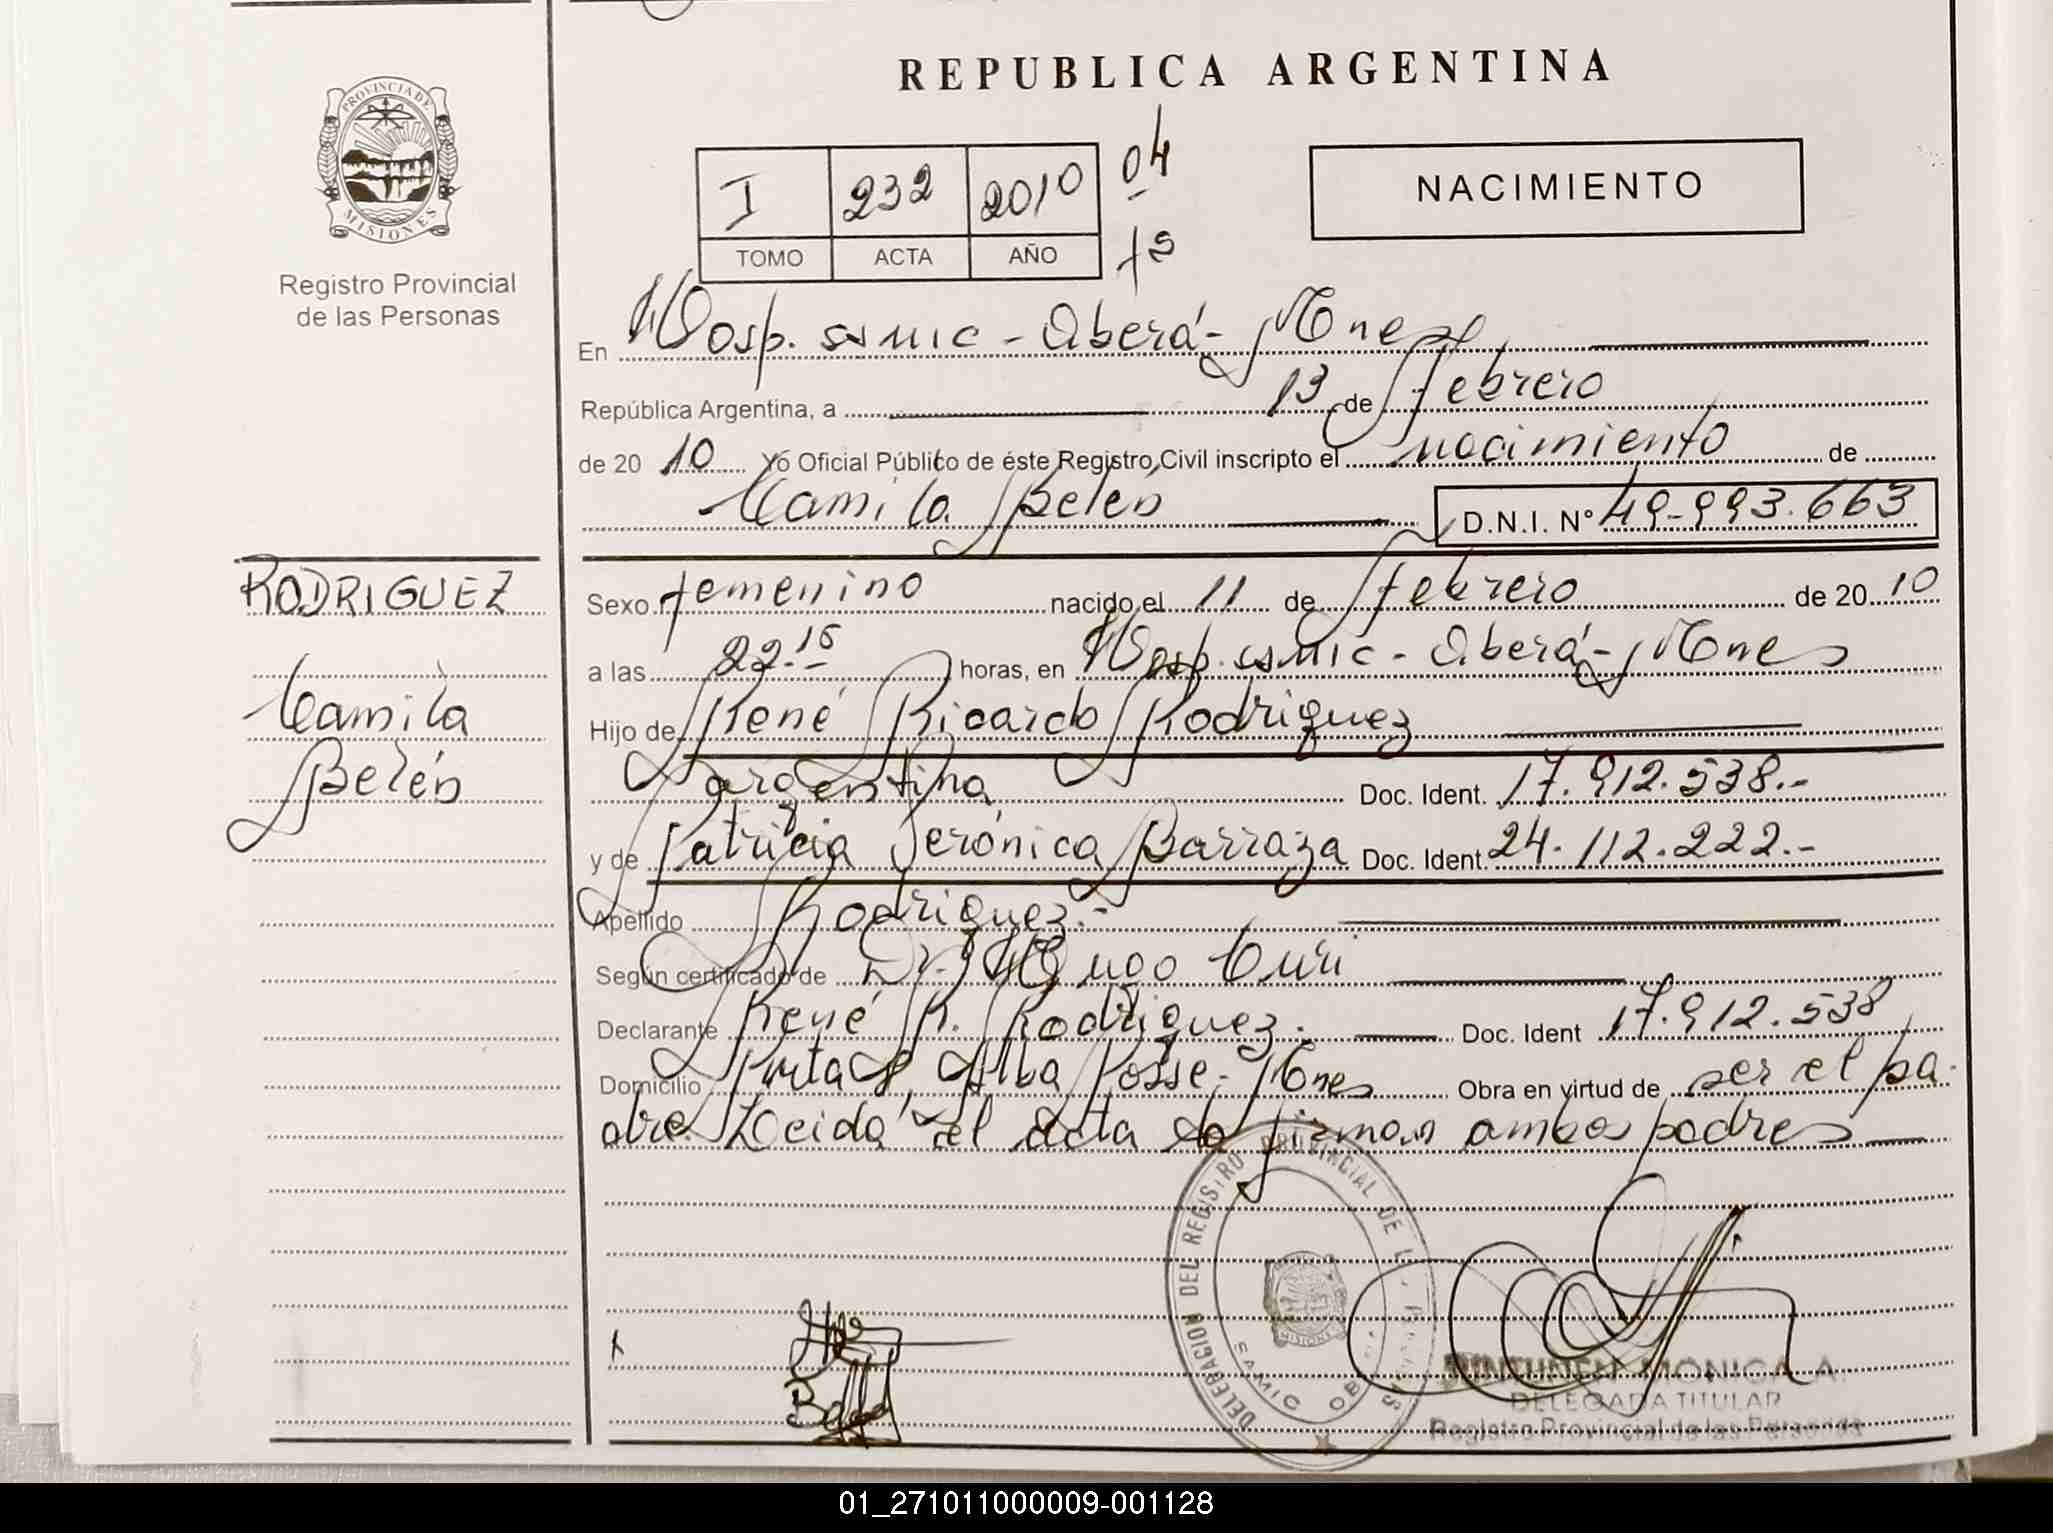 REPUBLICA ARGENTINA
PROVINCIA DE
MISIONES
Registro Provincial
de las Personas
I 232 2010 04
TOMO ACTA AÑO fs
NACIMIENTO
En Hosp. SAMIC - Oberá - Mnes
República Argentina, a 13 de febrero
de 20 10 Yo Oficial Público de éste Registro Civil inscripto el nacimiento de
Camila Belén D.N.I. Nº 49.993.663
RODRIGUEZ
Camila
Belén
Sexo femenino nacido el 11 de febrero de 20 10
a las 22.15 horas, en Hosp. SAMIC - Oberá - Mnes
Hijo de René Ricardo Rodriguez
argentina Doc. Ident. 17.912.538.-
y de Patricia Verónica Barraza Doc. Ident. 24.112.222.-
Apellido Rodriguez.-
Según certificado de Dr. Hugo Curi
Declarante René R. Rodriguez. Doc. Ident 17.912.538
Domicilio Alba Posse - Mnes Obra en virtud de ser el pa-
dre. Leida el acta la firman ambos padres
DELEGACION DEL REGISTRO PROVINCIAL DE L
SAMIC OB
MISIONES
MONICA A.
DELEGADA TITULAR
Registro Provincial de las Personas
01_271011000009-001128